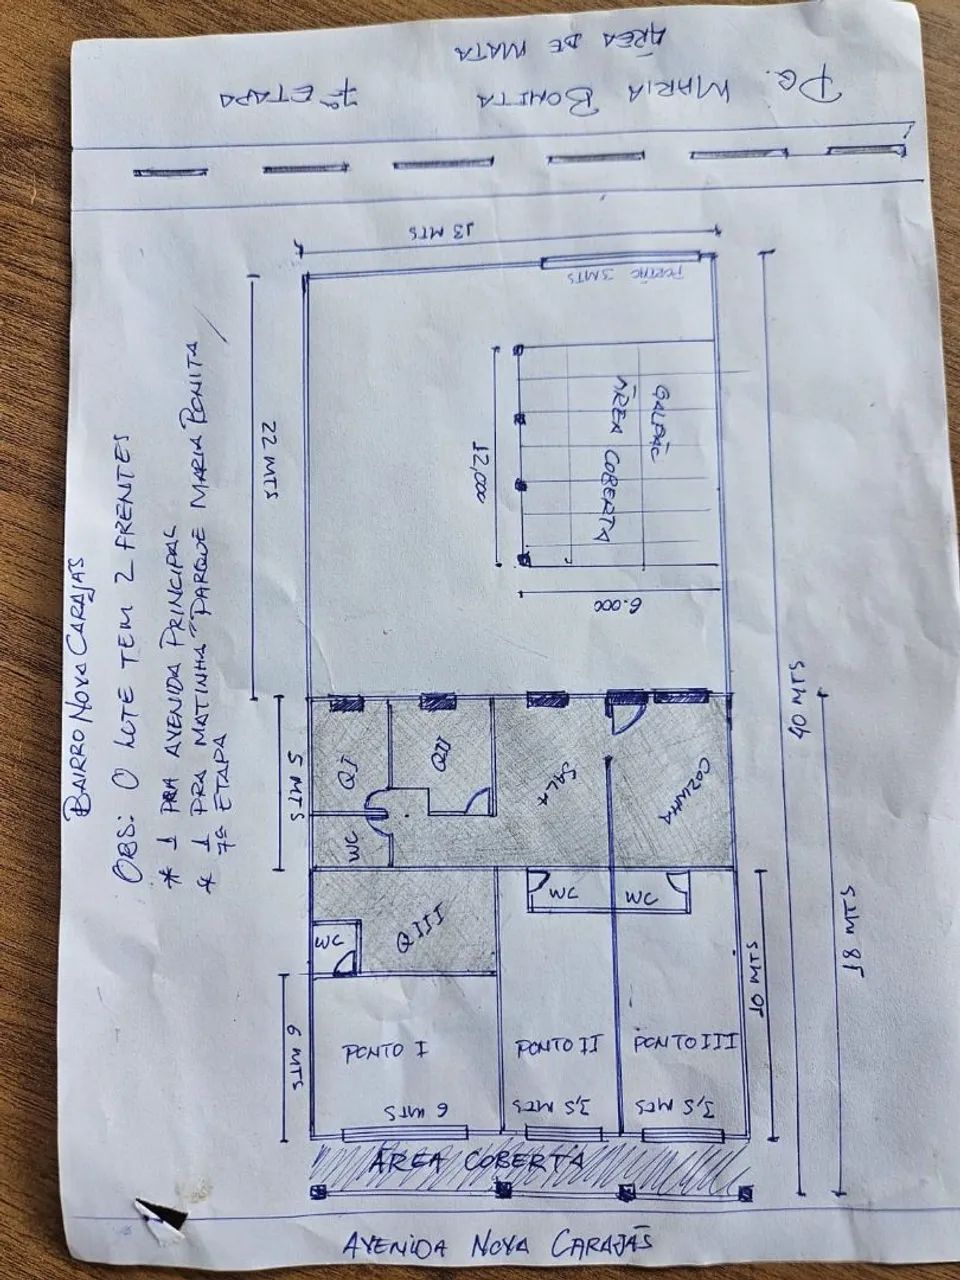 ÁREA DE MATA
PQ. MARIA BONITA 7ª ETAPA
13 MTS
PORTÃO 3 MTS
GALPÃO
ÁREA COBERTA
12,000
6.000
22 MTS
BAIRRO NOVA CARAJÁS
OBS: O LOTE TEM 2 FRENTES
* 1 PRA AVENIDA PRINCIPAL
* 1 PRA MATINHA PARQUE MARIA BONITA
7ª ETAPA
40 MTS
18 MTS
5 MTS
QI
QII
SALA
COZINHA
WC
WC
WC
QIII
WC
10 MTS
6 MTS
PONTO I
PONTO II
PONTO III
6 MTS
3,5 MTS
3,5 MTS
ÁREA COBERTA
AVENIDA NOVA CARAJÁS